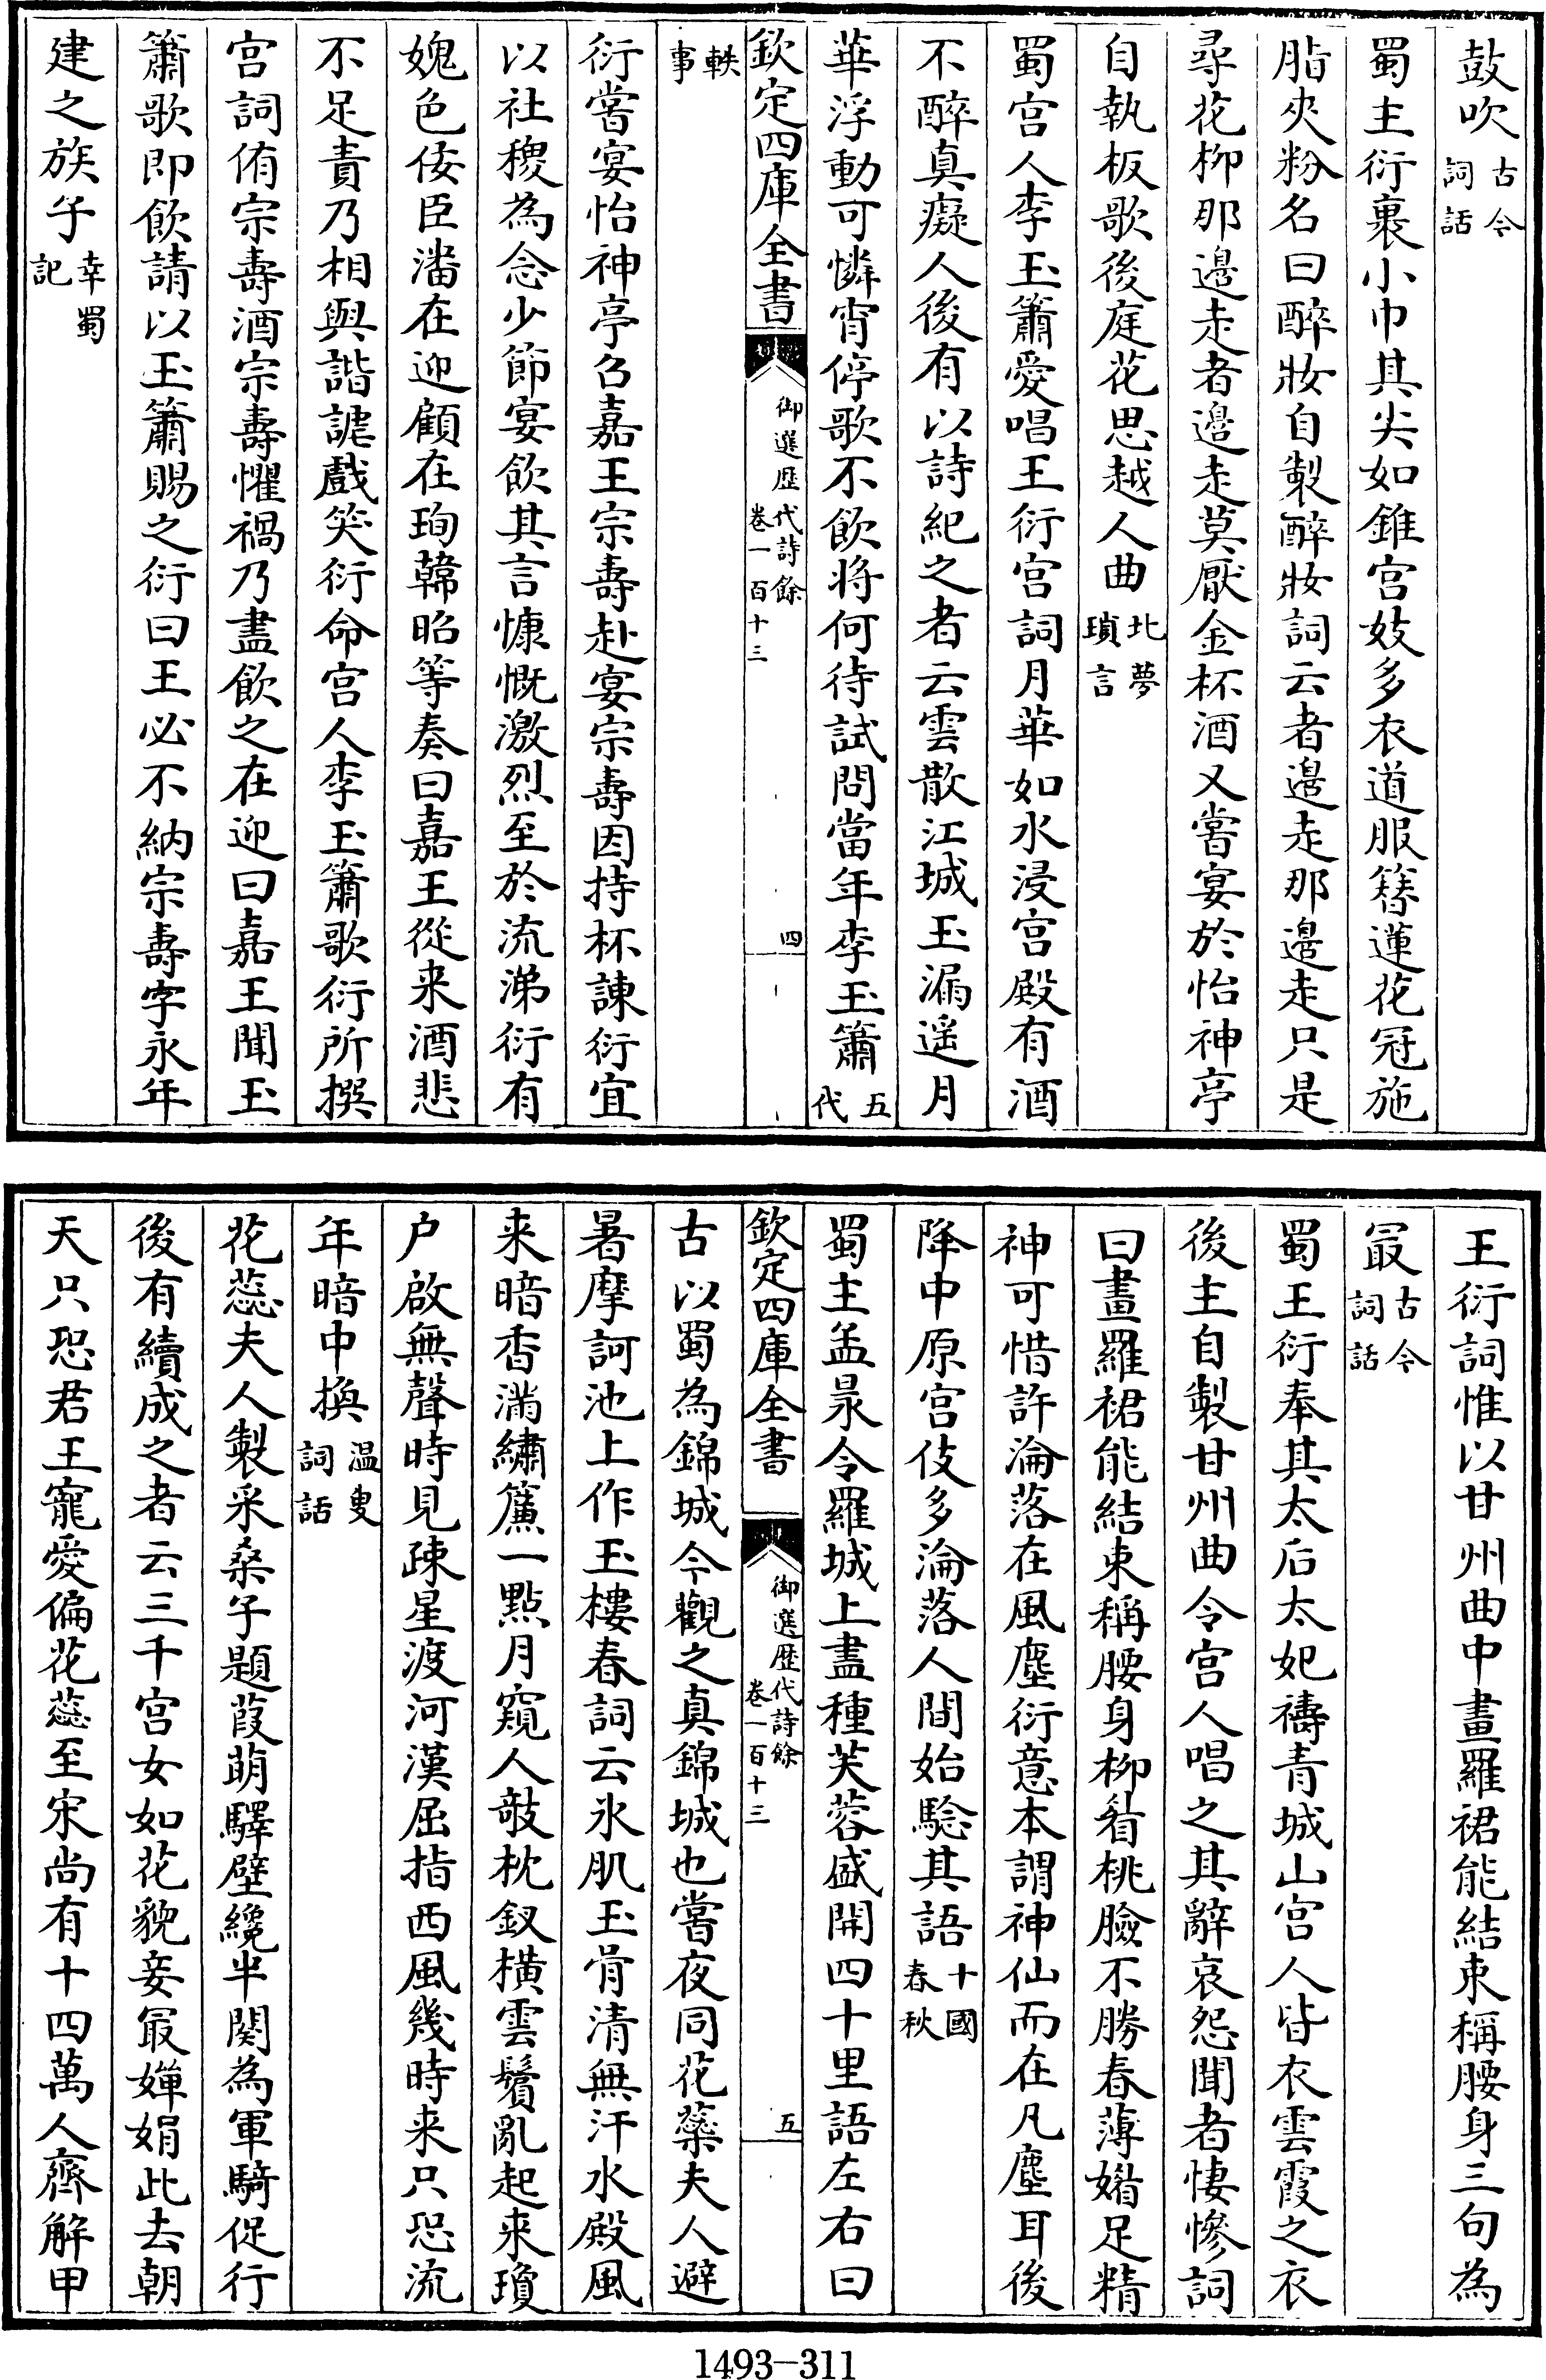 鼓吹古今詞話
蜀主衍裹小巾其尖如錐宮妓多衣道服簪蓮花冠施
脂夾粉名曰醉妝自製醉妝詞云者邉走那邉走只是
尋花栁那邉走者邉走莫厭金杯酒又嘗宴於怡神亭
自執板歌後庭花思越人曲北夢瑣言
蜀宫人李玉簫愛唱王衍宫詞月華如水浸宫殿有酒
不醉真癡人後有以詩紀之者云雲散江城玉漏遥月
華浮動可憐宵停歌不飲將何待試問當年李玉簫五代
欽定四庫全書 御選歴代詩餘 卷一百十三 四
軼事
衍嘗宴怡神亭召嘉王宗壽赴宴宗壽因持杯諫衍宜
以社稷為念少節宴飲其言慷慨激烈至於流涕衍有
媿色佞臣潘在迎顧在珣韓昭等奏曰嘉王從來酒悲
不足責乃相與諧謔戲笑衍命宫人李玉簫歌衍所撰
宫詞侑宗壽酒宗壽懼禍乃盡飲之在迎曰嘉王聞玉
簫歌即飲請以玉簫賜之衍曰王必不納宗壽字永年
建之族子幸蜀記
王衍詞惟以甘州曲中畫羅裙能結束稱腰身三句為
最古今詞話
蜀王衍奉其太后太妃禱青城山宫人皆衣雲霞之衣
後主自製甘州曲令宫人唱之其辭哀怨聞者悽慘詞
曰畫羅裙能結束稱腰身栁眉桃臉不勝春薄媚足精
神可惜許淪落在風塵衍意本謂神仙而在凡塵耳後
降中原宫伎多淪落人間始驗其語十國春秋
蜀主孟昶令羅城上盡種芙蓉盛開四十里語左右曰
欽定四庫全書 御選歴代詩餘 卷一百十三 五
古以蜀為錦城今觀之真錦城也嘗夜同花蘂夫人避
暑摩訶池上作玉樓春詞云氷肌玉骨清無汗水殿風
來暗香滿繡簾一點月窺人欹枕釵横雲鬢亂起來瓊
户啟無聲時見疎星渡河漢屈指西風幾時來只恐流
年暗中換温叟詞話
花蕊夫人製采桑子題葭萌驛壁纔半闋為軍騎促行
後有續成之者云三千宫女如花貌妾最嬋娟此去朝
天只恐君王寵愛偏花蕊至宋尚有十四萬人齊解甲
1493-311